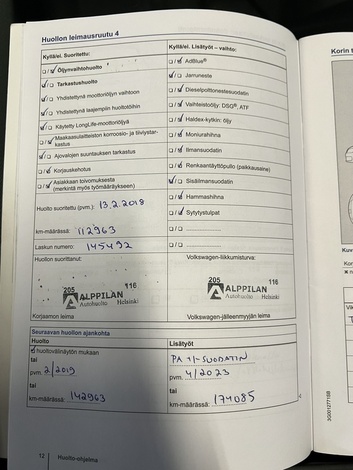 Huollon leimausruutu 4
Kyllä/ei. Suoritettu:
Öljynvaihtohuolto
Tarkastushuolto
Yhdistettynä moottoriöljyn vaihtoon
Yhdistettynä laajempiin huoltotöihin
Käytetty LongLife-moottoriöljyä
Maakaasulaitteiston korroosio- ja tiiviystar-
kastus
Ajovalojen suuntauksen tarkastus
Korjauskehotus
Asiakkaan toivomuksesta
(merkintä myös työmääräykseen)
Huolto suoritettu (pvm.): 13.2.2018
km-määrässä: 112963
Laskun numero: 145492
Huollon suorittanut:
205 116
ALPPILAN
Autohuolto Helsinki
Korjaamon leima
Kyllä/ei. Lisätyöt – vaihto:
AdBlue®
Jarruneste
Dieselpolttonestesuodatin
Vaihteistoöljy: DSG®, ATF
Haldex-kytkin: öljy
Moniurahihna
Ilmansuodatin
Renkaantäyttöpullo (paikkausaine)
Sisäilmansuodatin
Hammashihna
Sytytystulpat
Volkswagen-liikkumisturva:
205 116
ALPPILAN
Autohuolto Helsinki
Volkswagen-jälleenmyyjän leima
Seuraavan huollon ajankohta
Huolto
huoltovälinäytön mukaan
tai
pvm. 2/2019
tai
km-määrässä: 142963
Lisätyöt
PA
tai
pvm. 4/2023
tai
km-määrässä: 174085
12 Huolto-ohjelma
Korin t
Kuv
3G0012771SB